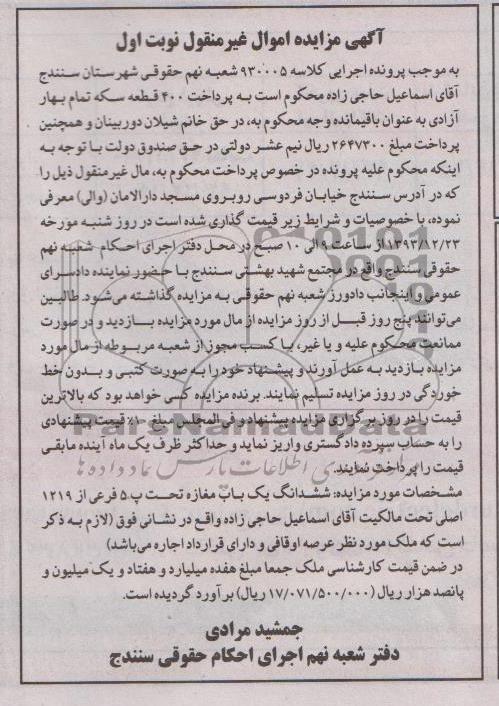 آگهی مزایده اموال غیرمنقول نوبت اول
به موجب پرونده اجرایی کلاسه ۹۳۰۰۰۵ شعبه نهم حقوقی شهرستان سنندج
آقای اسماعیل حاجی زاده محکوم است به پرداخت ۴۰۰ قطعه سکه تمام بهار
آزادی به عنوان باقیمانده وجه محکوم به، در حق خانم شیلان دوربینان و همچنین
پرداخت مبلغ ۲۶۴۷۳۰۰ ریال نیم عشر دولتی در حق صندوق دولت با توجه به
اینکه محکوم علیه پرونده در خصوص پرداخت محکوم به، مال غیرمنقول ذیل را
که در آدرس سنندج خیابان فردوسی روبروی مسجد دارالامان (والی) معرفی
نموده، با خصوصیات و شرایط زیر قیمت گذاری شده است در روز شنبه مورخه
۱۳۹۳/۱۲/۲۳ از ساعت ۹ الی ۱۰ صبح در محل دفتر اجرای احکام شعبه نهم
حقوقی سنندج واقع در مجتمع شهید بهشتی سنندج با حضور نماینده دادسرای
عمومی و اینجانب دادورز شعبه نهم حقوقی به مزایده گذاشته می‌شود. طالبین
می‌توانند پنج روز قبل از روز مزایده از مال مورد مزایده بازدید و در صورت
ممانعت محکوم علیه و یا غیر، با کسب مجوز از شعبه مربوطه از مال مورد
مزایده بازدید به عمل آورند و پیشنهاد خود را به صورت کتبی و بدون خط
خوردگی در روز مزایده تسلیم نمایند. برنده مزایده کسی خواهد بود که بالاترین
قیمت را در روز برگزاری مزایده پیشنهاد و فی المجلس مبلغ ۱۰٪ قیمت پیشنهادی
را به حساب سپرده دادگستری واریز نماید و حداکثر ظرف یک ماه آینده مابقی
قیمت را پرداخت نمایند.
مشخصات مورد مزایده: ششدانگ یک باب مغازه تحت پ ۵ فرعی از ۱۲۱۹
اصلی تحت مالکیت آقای اسماعیل حاجی زاده واقع در نشانی فوق (لازم به ذکر
است که ملک مورد نظر عرصه اوقافی و دارای قرارداد اجاره می‌باشد)
در ضمن قیمت کارشناسی ملک جمعا مبلغ هفده میلیارد و هفتاد و یک میلیون و
پانصد هزار ریال (۱۷/۰۷۱/۵۰۰/۰۰۰ ریال) برآورد گردیده است.
جمشید مرادی
دفتر شعبه نهم اجرای احکام حقوقی سنندج
ParsNamadData